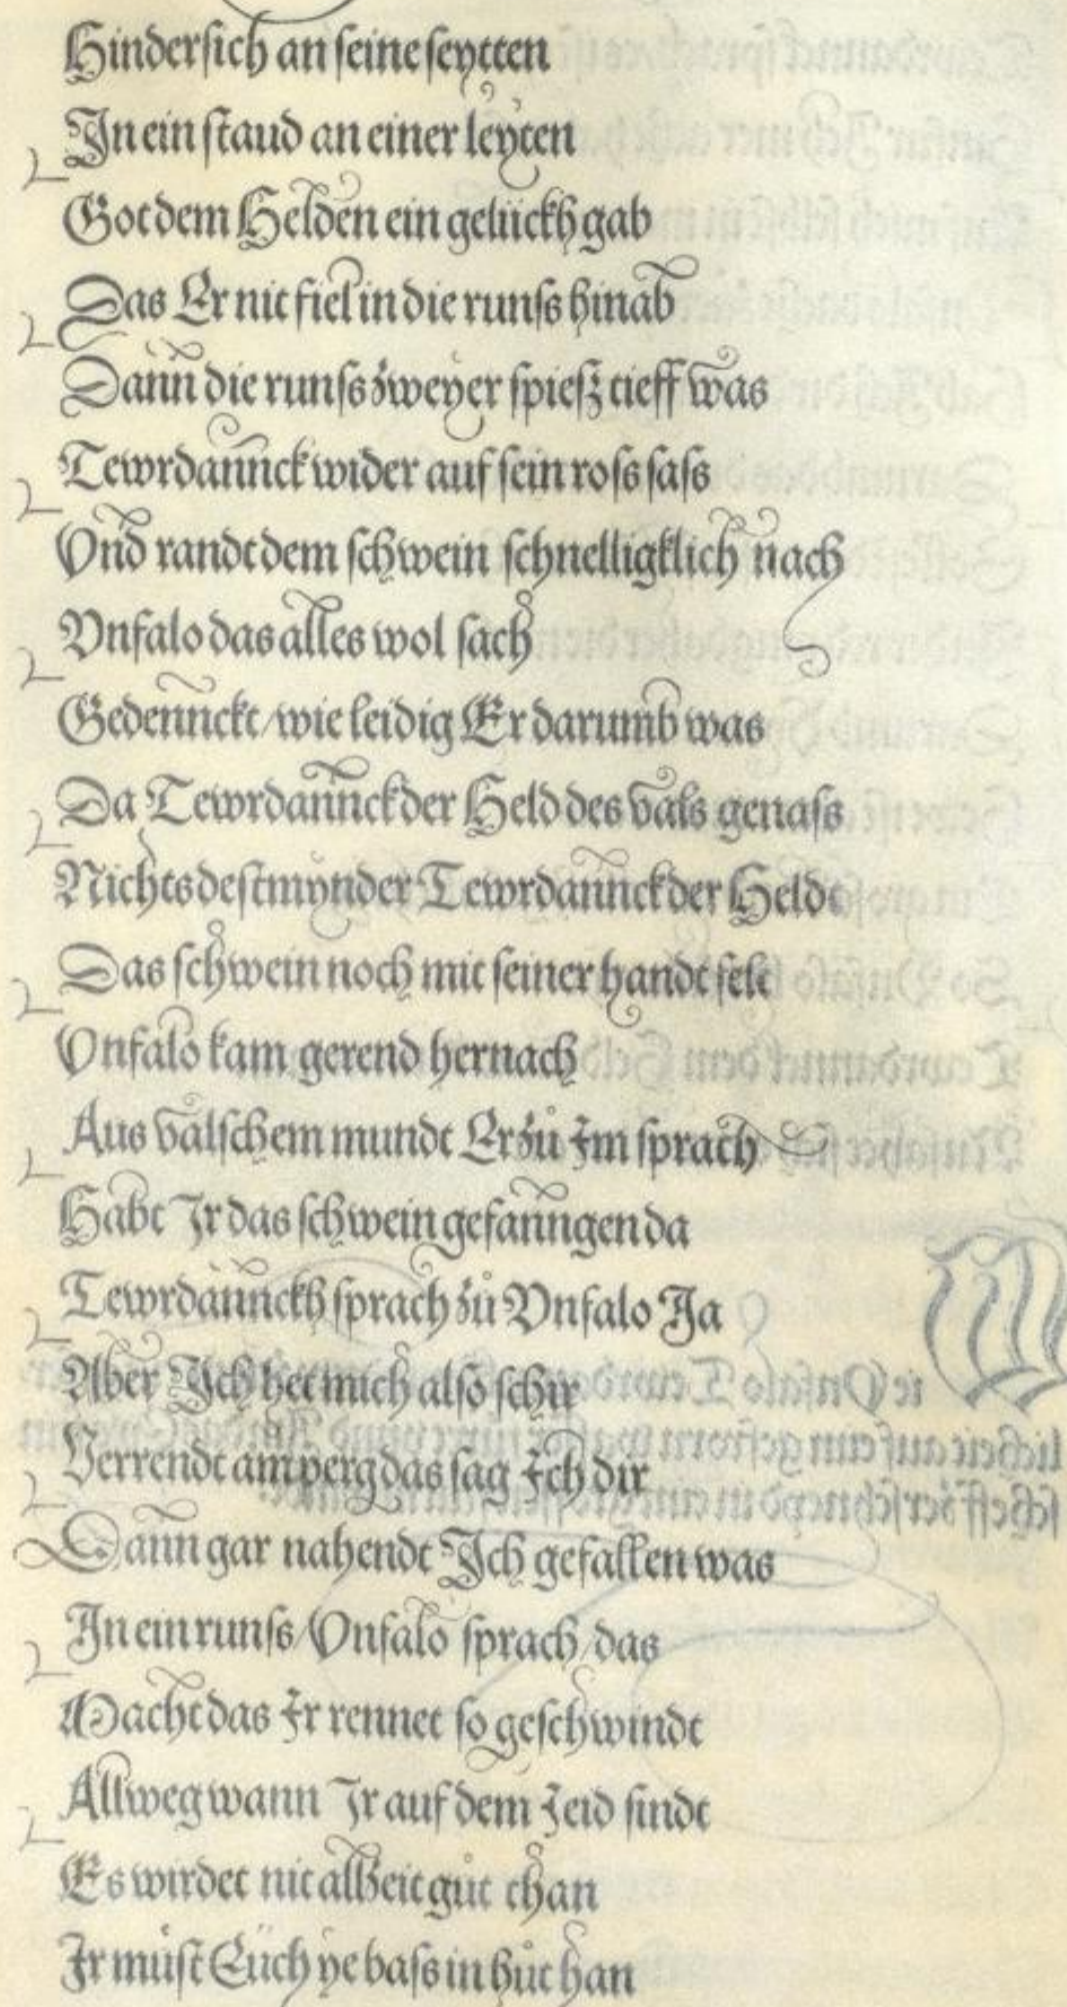 Hindersich an seine seytten
In ein staud an einer leyten
Got dem Helden ein gelückh gab
Das Er nit fiel in die runss hinab
Dann die runss zweyer spiesz tieff was
Tewrdannck wider auf sein ross sass
Vnd randt dem schwein schnelligklich nach
Vnfalo das alles wol sach
Gedennckt / wie leidig Er darumb was
Da Tewrdannck der Held des vals genass
Nichtsdestmynder Tewrdannck der Heldt
Das schwein noch mit seiner handt felt
Vnfalo kam gerend hernach
Aus valschem mundt Er zů Im sprach
Habt Ir das schwein gefanngen da
Tewrdannckh sprach zů Vnfalo Ja
Aber Ich het mich also schir
Verrendt am perg das sag Ich dir
Dann gar nahendt Ich gefallen was
In ein runss / Vnfalo sprach / das
Macht das Ir rennet so geschwindt
Allweg wann Ir auf dem Jeid sindt
Es wirdet nit allzeit gůt than
Ir můst Eüch ye bass in hůt han